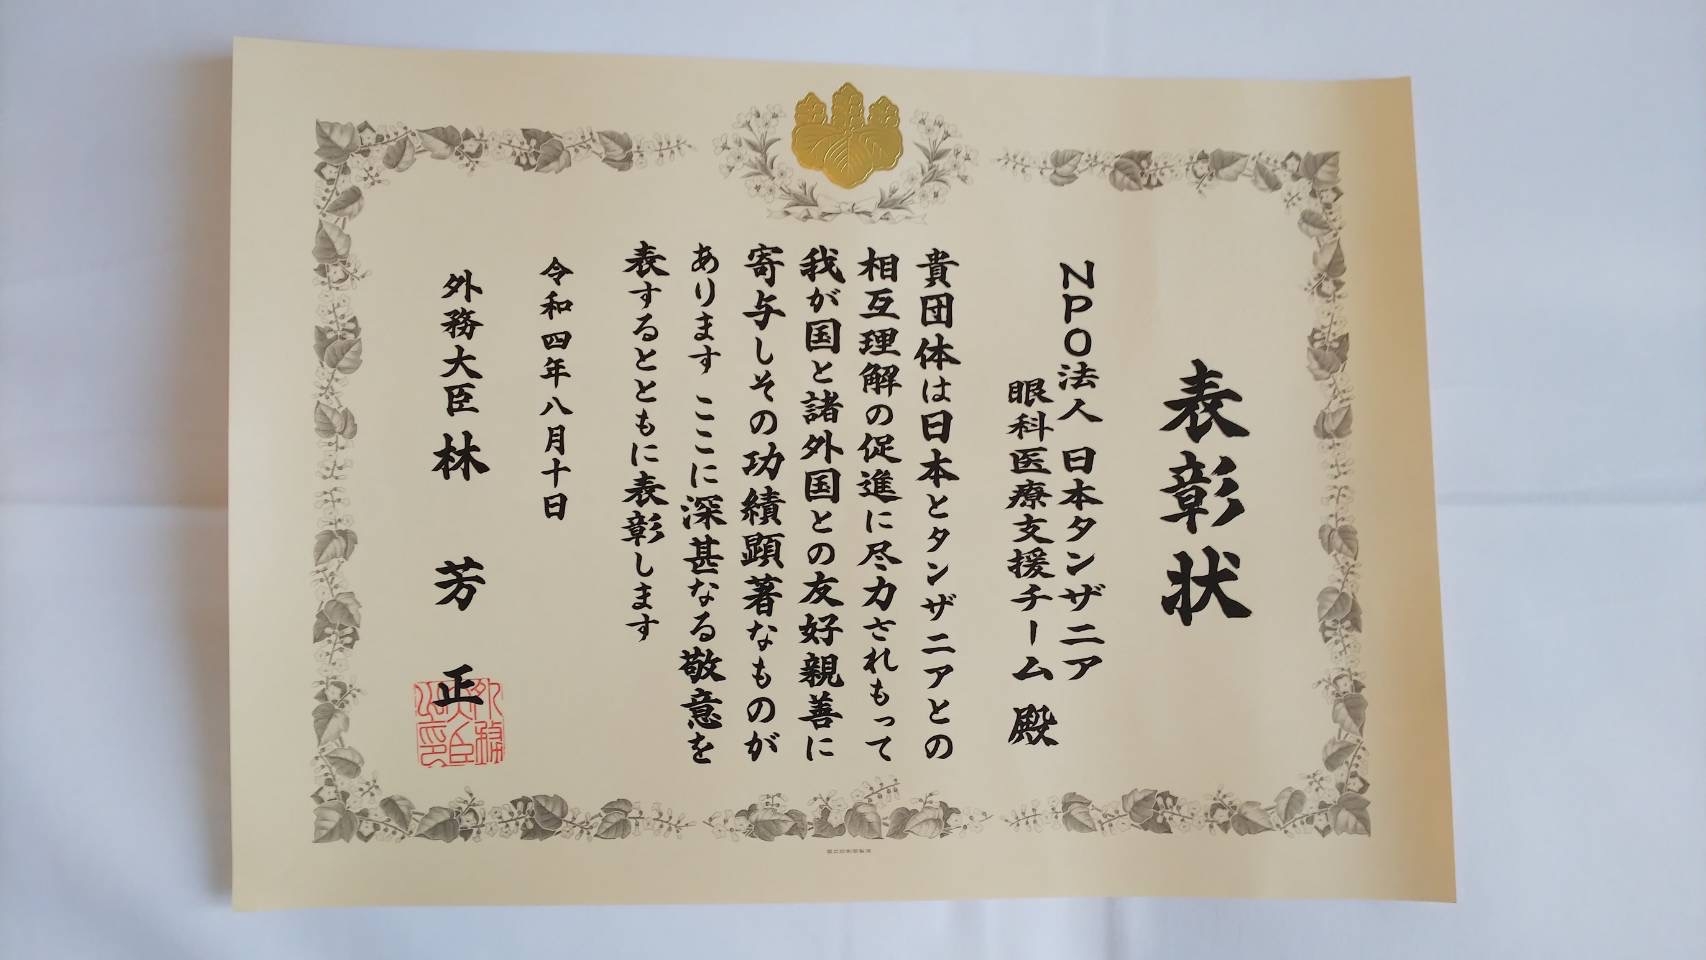 表彰状
NPO法人 日本タンザニア
眼科医療支援チーム 殿
貴団体は日本とタンザニアとの
相互理解の促進に尽力されもって
我が国と諸外国との友好親善に
寄与しその功績顕著なものが
あります ここに深甚なる敬意を
表するとともに表彰します
令和四年八月十日
外務大臣 林 芳 正
外務大臣之印